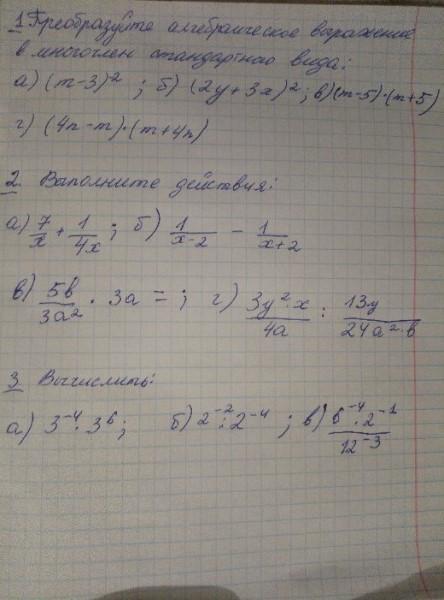 1. Преобразуйте алгебраическое выражение
в многочлен стандартного вида:
а) (m-3)²; б) (2y+3x)²; в) (m-5)·(m+5)
г) (4n-m)·(m+4n)
2. Выполните действия:
а) 7/x + 1/4x; б) 1/x-2 - 1/x+2
в) 5b/3a² · 3a = ; г) 3y²x/4a : 13y/24a²·b
3 Вычислить:
а) 3⁻⁴·3⁶; б) 2⁻²:2⁻⁴; в) 6⁻⁴·2⁻¹/12⁻³